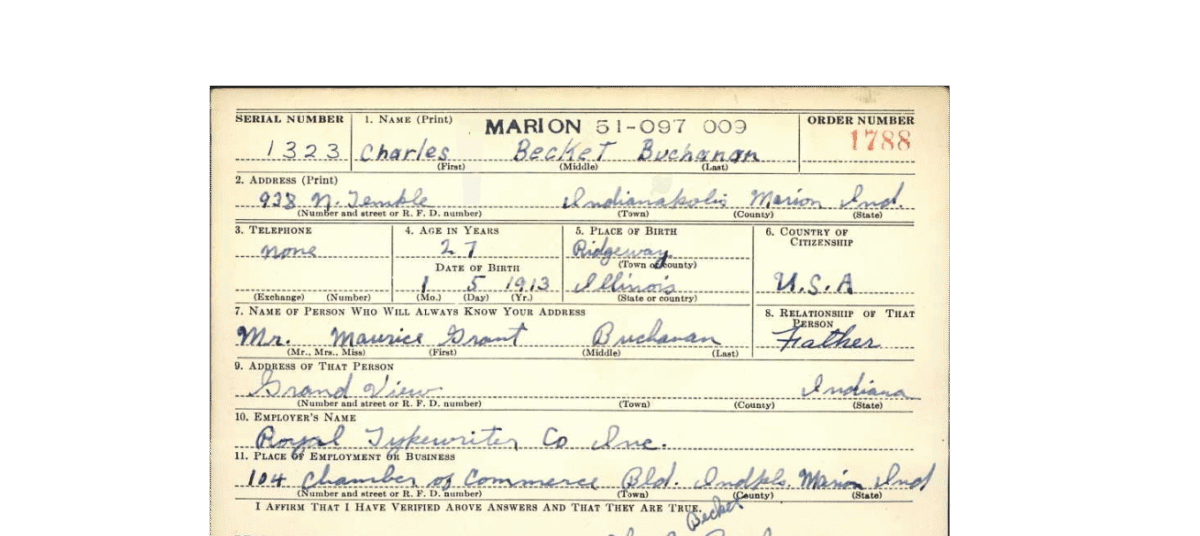 SERIAL NUMBER 1. NAME (Print) MARION 51-097 009 ORDER NUMBER
1323 Charles Becket Buchanan 1788
(First) (Middle) (Last)
2. ADDRESS (Print)
938 N. Temple Indianapolis Marion Ind.
(Number and street or R. F. D. number) (Town) (County) (State)
3. TELEPHONE 4. AGE IN YEARS 5. PLACE OF BIRTH 6. COUNTRY OF CITIZENSHIP
none 27 Ridgeway
DATE OF BIRTH (Town or county)
1 5 1913 Illinois U.S.A
(Exchange) (Number) (Mo.) (Day) (Yr.) (State or country)
7. NAME OF PERSON WHO WILL ALWAYS KNOW YOUR ADDRESS 8. RELATIONSHIP OF THAT PERSON
Mr. Maurice Grant Buchanan Father
(Mr., Mrs., Miss) (First) (Middle) (Last)
9. ADDRESS OF THAT PERSON
Grand View Indiana
(Number and street or R. F. D. number) (Town) (County) (State)
10. EMPLOYER'S NAME
Royal Typewriter Co Inc.
11. PLACE OF EMPLOYMENT OR BUSINESS
104 Chamber of Commerce Bld. Indpls. Marion Ind
(Number and street or R. F. D. number) (Town) (County) (State)
I AFFIRM THAT I HAVE VERIFIED ABOVE ANSWERS AND THAT THEY ARE TRUE.
Becket